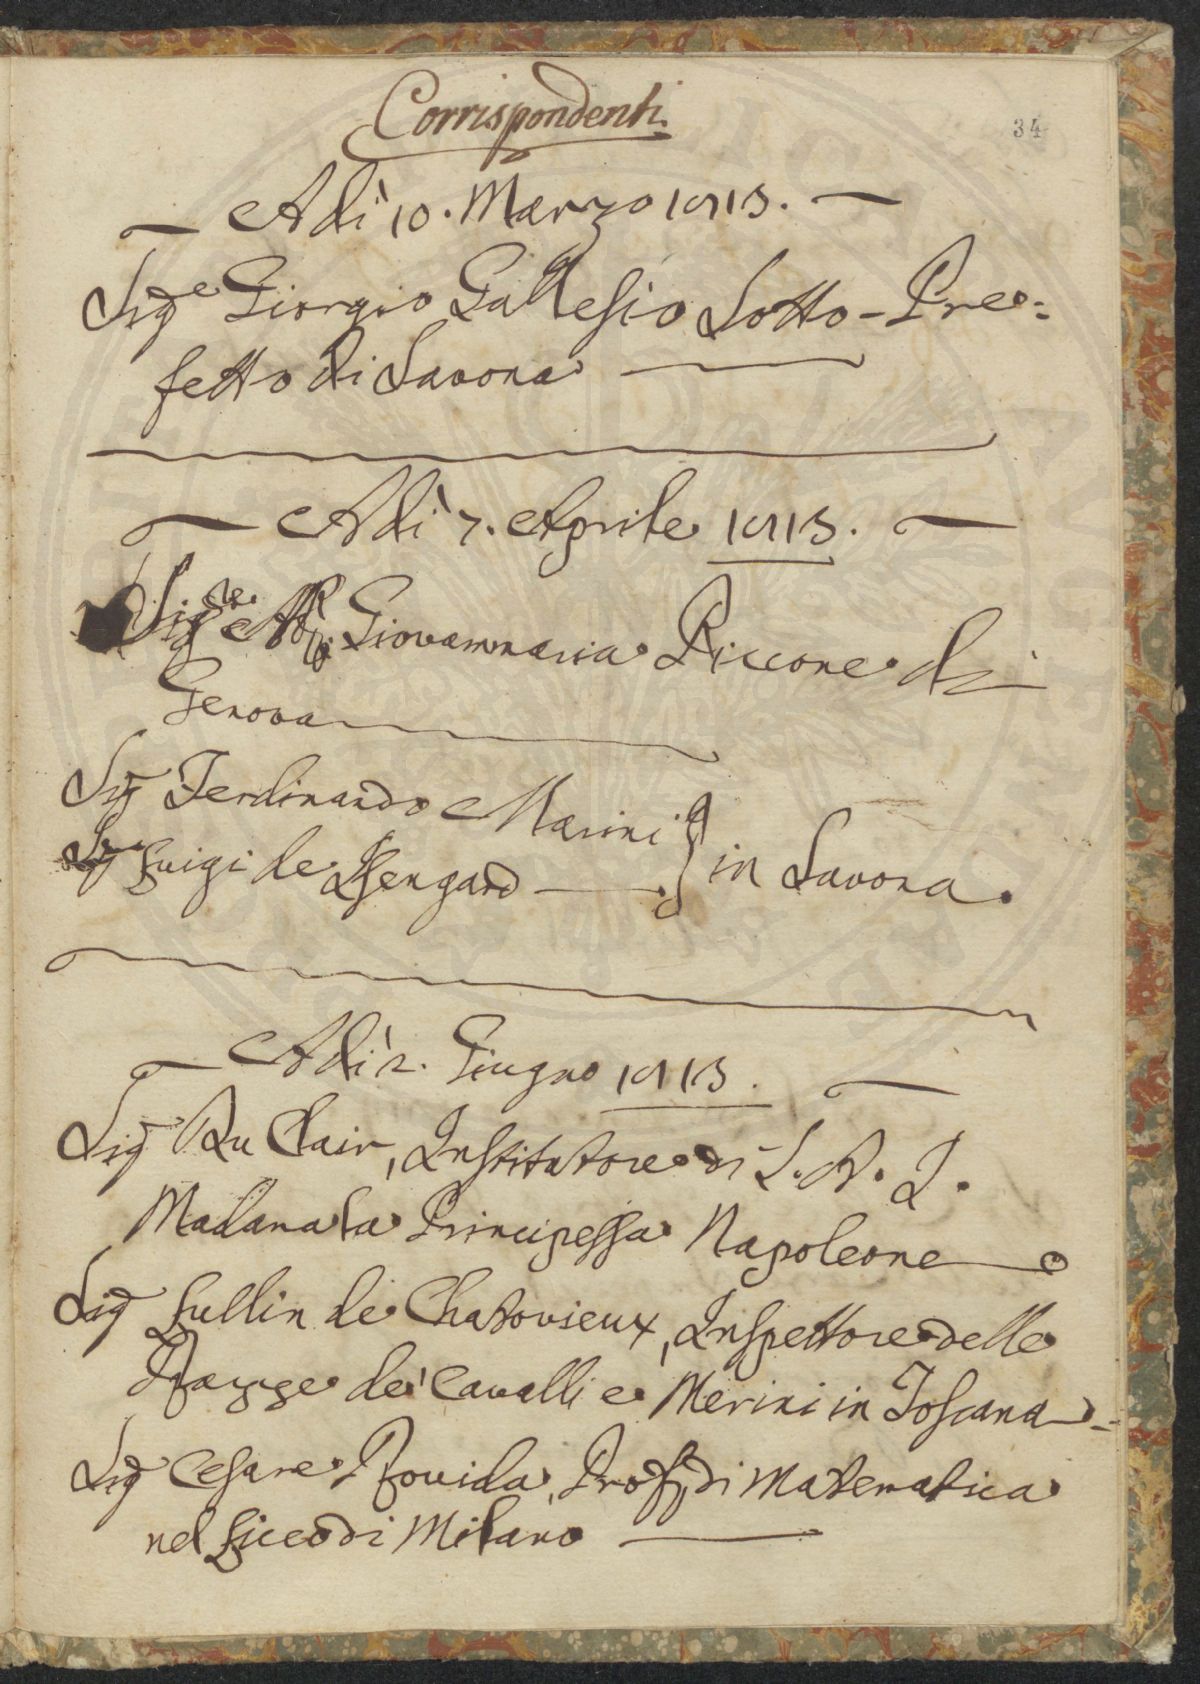 Corrispondenti.
34
Adì 10. Marzo 1813.
Sig.e Giorgio Gallesio Sotto-Pre=
fetto di Savona
Adì 7. Aprile 1813.
Sig.re Giovanmaria Piccone di
Genova
Sig Ferdinando Marini
in Savona.
Sig Luigi de Isengard
Adì 2. Giugno 1813.
Sig Du Clair, Institutore di S. A. I.
Madama la Principessa Napoleone
Sig Lullin de Chatovieux, Inspettore delle
Razze de' Cavalli e Merini in Toscana
Sig Cesare Rovida, Prof. di Matematica
nel Liceo di Milano